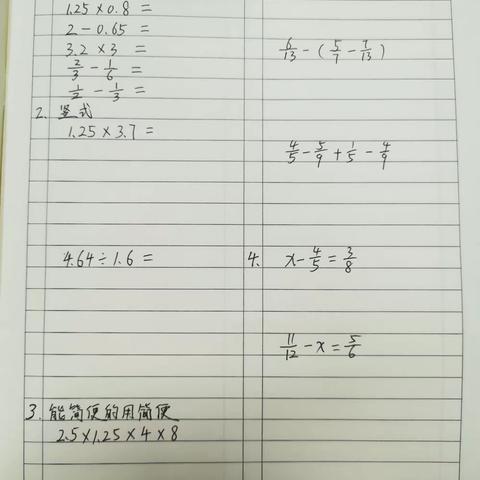 1.25×0.8=
2-0.65=
3.2×3=
2/3-1/6=
1/2-1/3=
2. 竖式
1.25×3.7=
4.64÷1.6=
3. 能简便的用简便
2.5×1.25×4×8
6/13-(5/7-7/13)
4/5-5/9+1/5-4/9
4. x-4/5=3/8
11/12-x=5/6